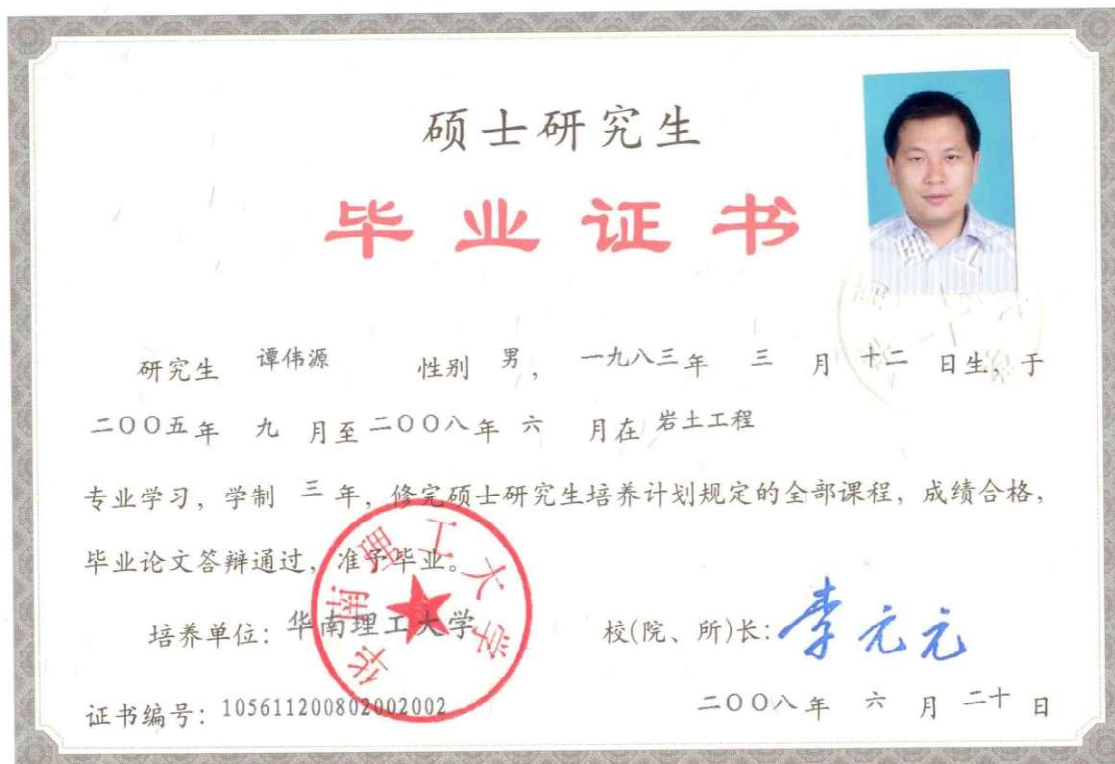 硕士研究生
毕业证书
研究生 谭伟源 性别 男, 一九八三年 三 月 十二 日生, 于
二〇〇五年 九 月至二〇〇八年 六 月在 岩土工程
专业学习, 学制 三 年, 修完硕士研究生培养计划规定的全部课程, 成绩合格,
毕业论文答辩通过, 准予毕业。
华南理工大学
培养单位: 华南理工大学 校(院、所)长: 李元元
证书编号: 105611200802002002 二〇〇八年 六 月 二十 日